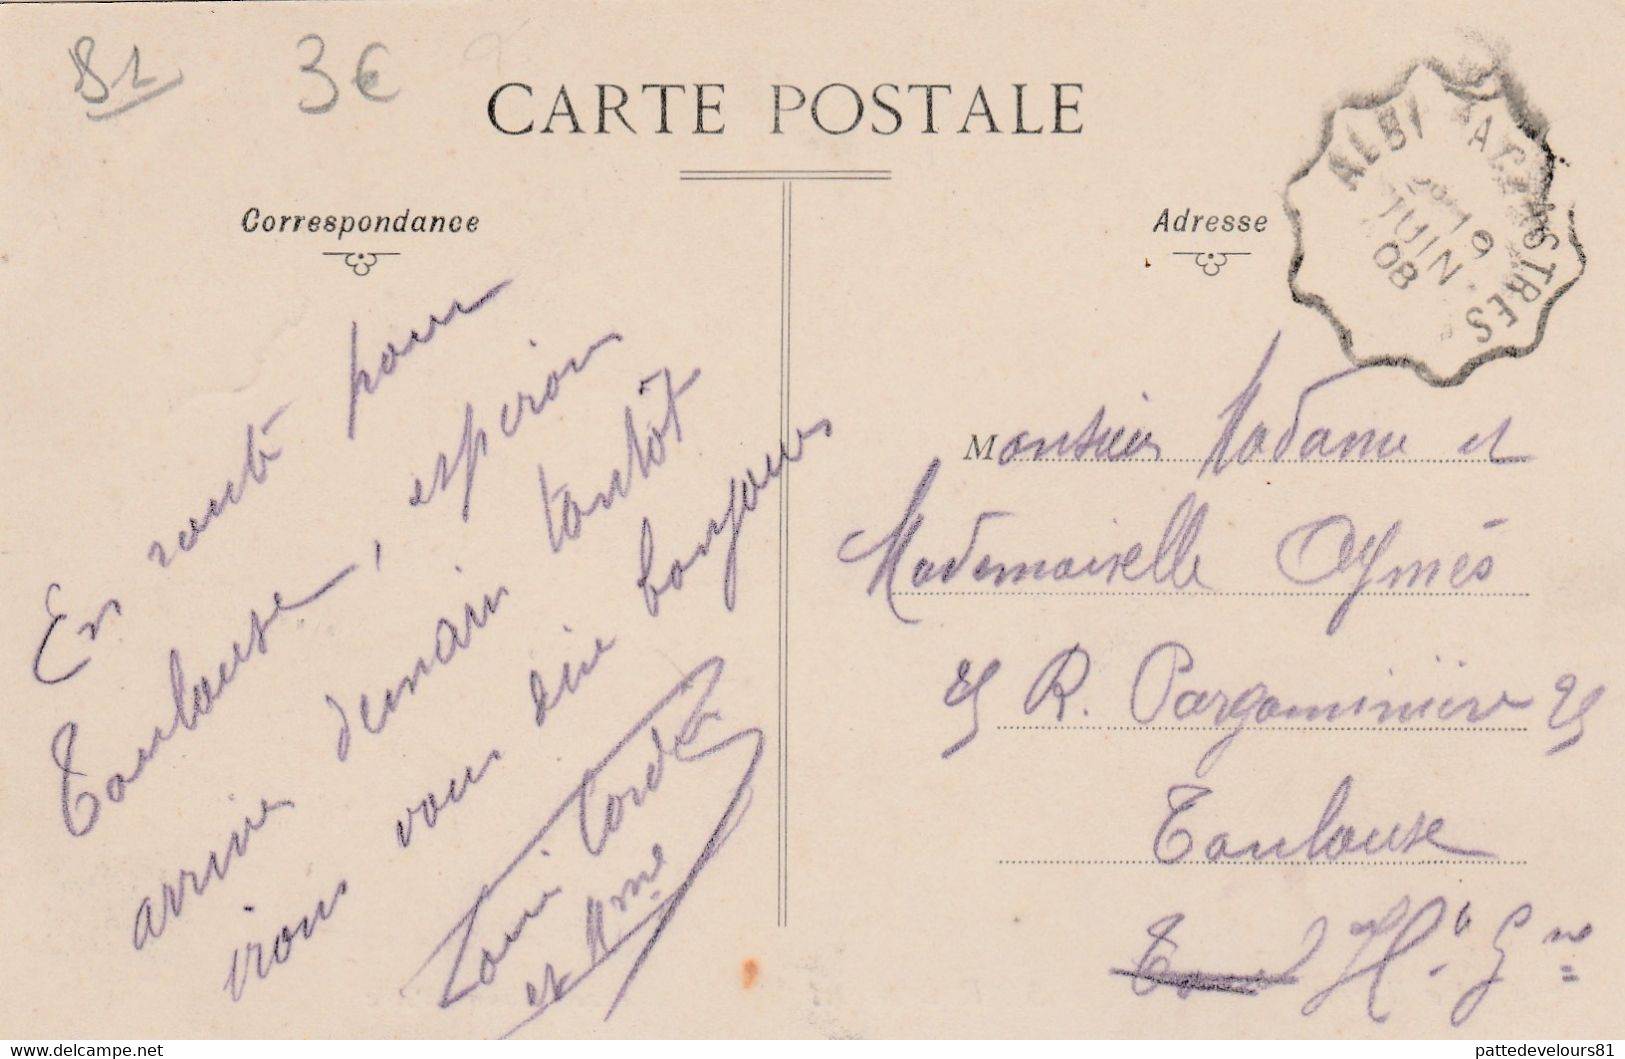 81
3€
CARTE POSTALE
Correspondance
Adresse
ALBI A CASTRES
19
JUIN
08
En route pour
Toulouse, esperon
arrive demain tantôt
irons vous dire bonjour
Louis
et Mme
Monsieur Madame et
Mademoiselle Aymès
25 R. Pargaminière 25
Toulouse
Hte Gne
www.delcampe.net
pattedevelours81